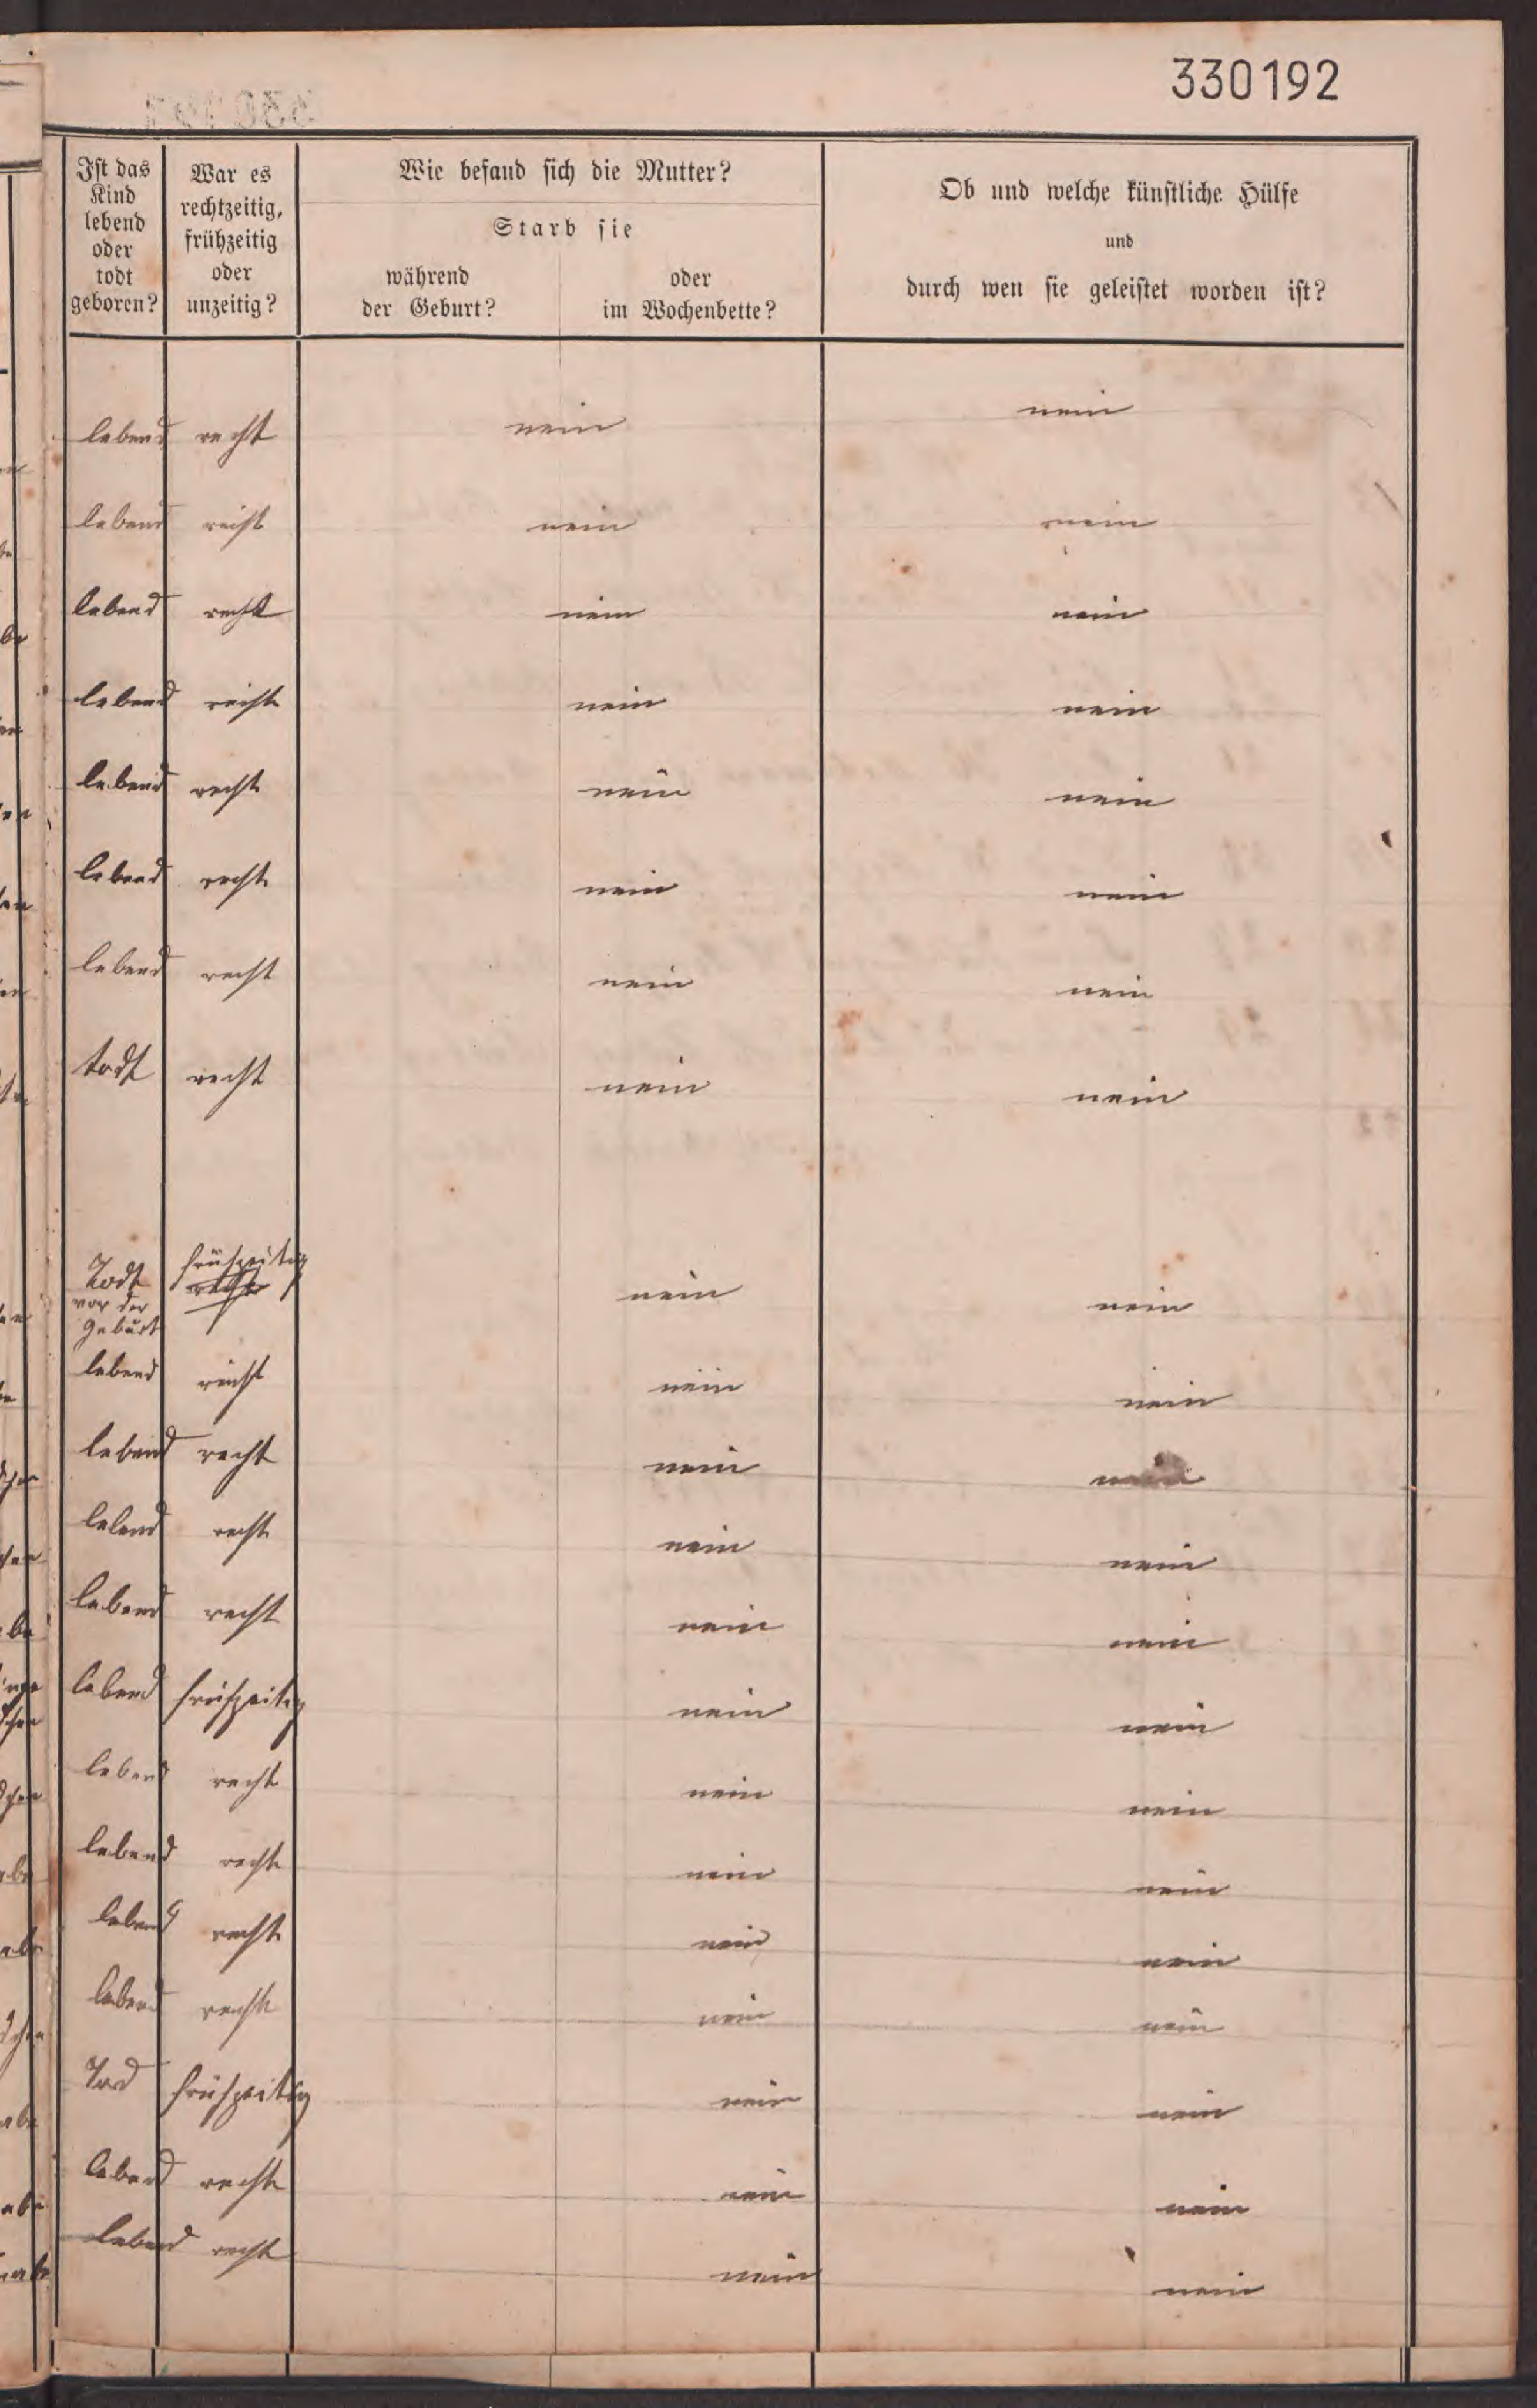 330192
Ist das
Kind
lebend
oder
todt
geboren?
War es
rechtzeitig,
frühzeitig
oder
unzeitig?
Wie befand sich die Mutter?
Starb sie
während
der Geburt?
oder
im Wochenbette?
Ob und welche künstliche Hülfe
und
durch wen sie geleistet worden ist?
lebend recht nein nein
lebend recht nein nein
lebend recht nein nein
lebend recht nein nein
lebend recht nein nein
lebend recht nein nein
lebend recht nein nein
todt recht nein nein
Todt frühzeitig nein nein
vor der recht
Geburt
lebend recht nein nein
lebend recht nein nein
lebend recht nein nein
lebend recht nein nein
lebend frühzeitig nein nein
lebend recht nein nein
lebend recht nein nein
lebend recht nein nein
lebend recht nein nein
Tod frühzeitig nein nein
lebend recht nein nein
lebend recht nein nein